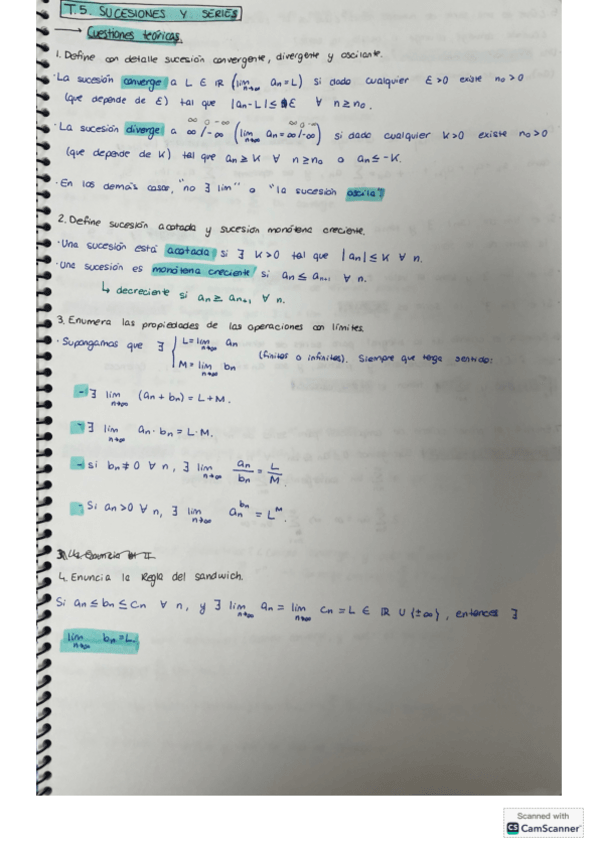 T.5. SUCESIONES Y SERIES
→ Cuestiones teóricas.
1. Define con detalle sucesión convergente, divergente y oscilante.
· La sucesión converge a L ∈ ℝ (lim n→∞ an = L) si dado cualquier ε > 0 existe n₀ > 0
(que depende de ε) tal que |an - L| ≤ ε ∀ n ≥ n₀.
· La sucesión diverge a ∞/-∞ (lim n→∞ an = ∞/-∞) si dado cualquier K > 0 existe n₀ > 0
(que depende de K) tal que an ≥ K ∀ n ≥ n₀ o an ≤ -K.
· En los demás casos, "no ∃ lim" o "la sucesión oscila"
2. Define sucesión acotada y sucesión monótona creciente.
· Una sucesión está acotada si ∃ K > 0 tal que |an| ≤ K ∀ n.
· Una sucesión es monótona creciente si an ≤ an+1 ∀ n.
↳ decreciente si an ≥ an+1 ∀ n.
3. Enumera las propiedades de las operaciones con límites.
· Supongamos que ∃ { L = lim n→∞ an
M = lim n→∞ bn (finitos o infinitos). Siempre que tenga sentido:
- ∃ lim n→∞ (an + bn) = L + M.
- ∃ lim n→∞ an · bn = L · M.
- si bn ≠ 0 ∀ n, ∃ lim n→∞ an/bn = L/M.
- Si an > 0 ∀ n, ∃ lim n→∞ an^bn = L^M.
4. Enuncia la Regla del sandwich.
Si an ≤ bn ≤ cn ∀ n, y ∃ lim n→∞ an = lim n→∞ cn = L ∈ ℝ ∪ {±∞}, entonces ∃
lim n→∞ bn = L.
Scanned with
CS CamScanner